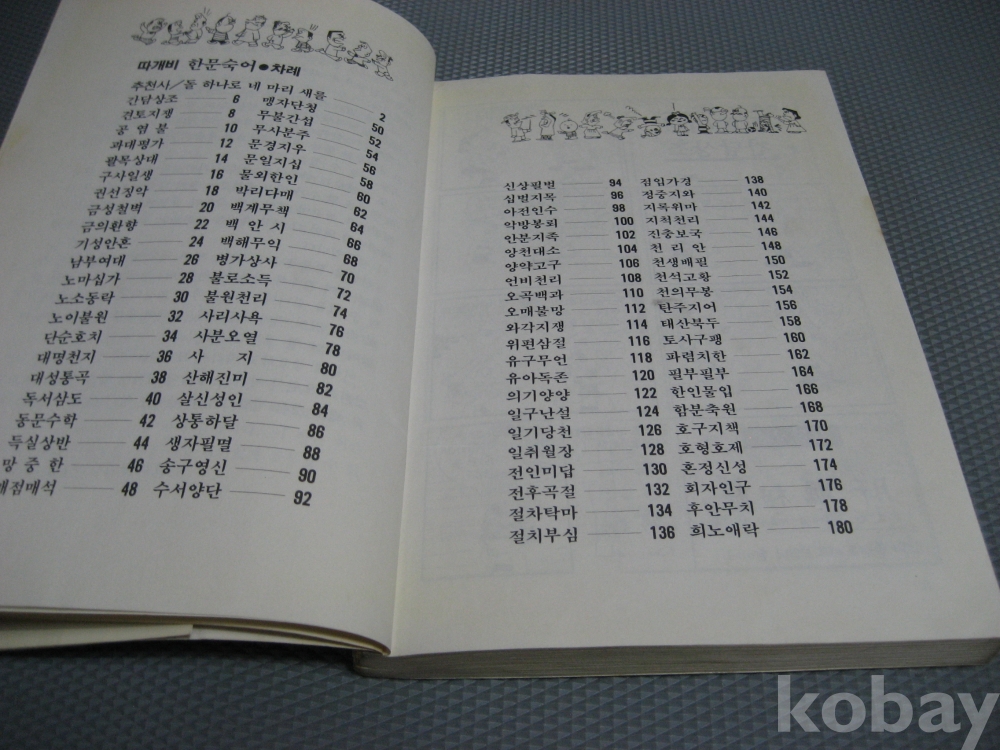 따개비 한문숙어●차례
추천사/돌 하나로 네 마리 새를 2
간담상조 6 맹자단청 50
견토지쟁 8 무불간섭 52
공 염 불 10 무사분주 54
과대평가 12 문경지우 56
괄목상대 14 문일지십 58
구사일생 16 물외한인 60
권선징악 18 박리다매 62
금성철벽 20 백계무책 64
금의환향 22 백 안 시 66
기성안혼 24 백해무익 68
남부여대 26 병가상사 70
노마십가 28 불로소득 72
노소동락 30 불원천리 74
노이불원 32 사리사욕 76
단순호치 34 사분오열 78
대명천지 36 사 지 80
대성통곡 38 산해진미 82
독서삼도 40 살신성인 84
동문수학 42 상통하달 86
득실상반 44 생자필멸 88
망 중 한 46 송구영신 90
매점매석 48 수서양단 92
신상필벌 94 점입가경 138
십벌지목 96 정중지와 140
아전인수 98 지록위마 142
악방봉뢰 100 지척천리 144
안분지족 102 진충보국 146
앙천대소 104 천 리 안 148
양약고구 106 천생배필 150
언비천리 108 천석고황 152
오곡백과 110 천의무봉 154
오매불망 112 탄주지어 156
와각지쟁 114 태산북두 158
위편삼절 116 토사구팽 160
유구무언 118 파렴치한 162
유아독존 120 필부필부 164
의기양양 122 한인물입 166
일구난설 124 함분축원 168
일기당천 126 호구지책 170
일취월장 128 호형호제 172
전인미답 130 혼정신성 174
전후곡절 132 회자인구 176
절차탁마 134 후안무치 178
절치부심 136 희노애락 180
kobay